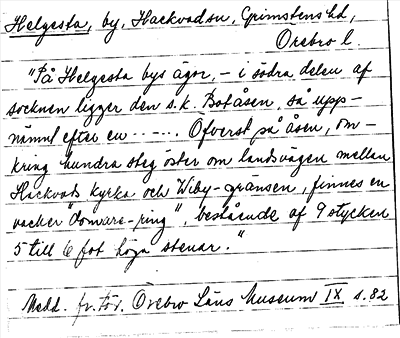 Helgesta, by, Hackvad sn, Grimstens hd,
Örebro l.
"På Helgesta bys ägor, – i södra delen af
socknen ligger den s.k. Botåsen, så upp-
nämnd efter en ----- Öfverst på åsen, om-
kring hundra steg öster om landsvägen mellan
Hackvads kyrka och Wiby-gränsen, finnes en
vacker "domare-ring", bestående af 9 stycken
5 till 6 fot höga stenar."
Medd. fr. För. Örebro Läns Museum IX s. 82